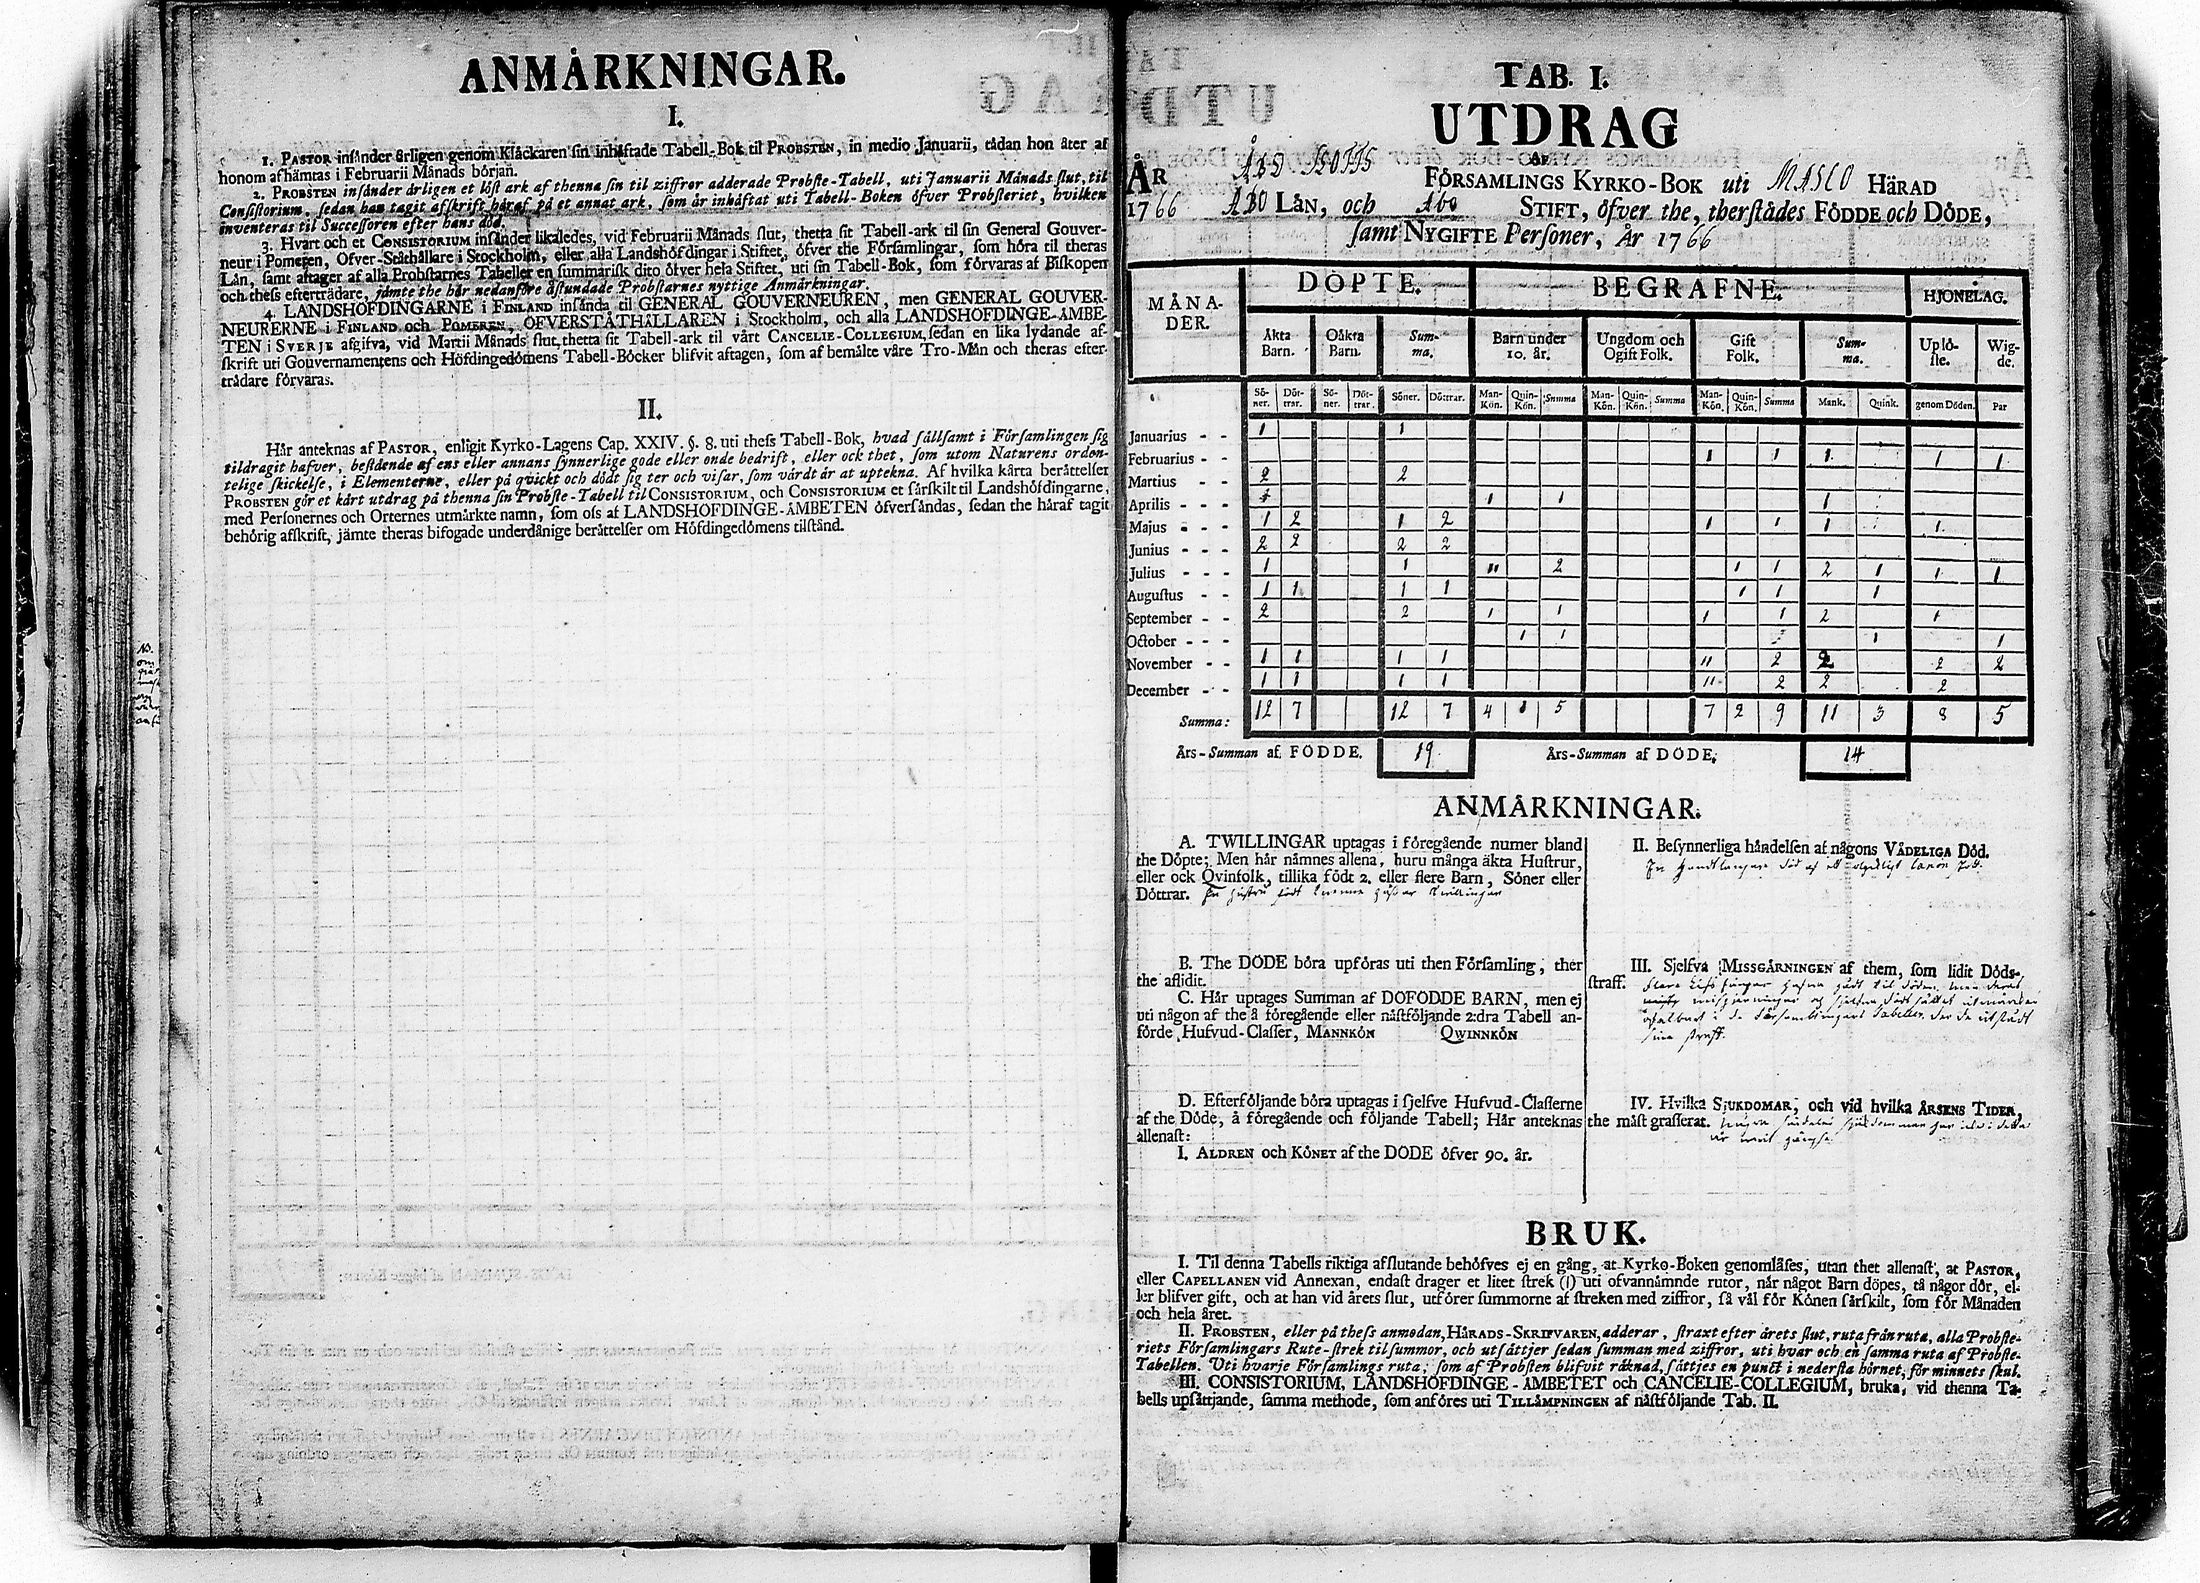 ANMÅRKNINGAR.
I.
1. PASTOR insånder årligen genom Klåckaren sin inhåftade Tabell-Bok til PROBSTEN, in medio Januarii, tådan hon åter af
honom afhämtas i Februarii Månads början.
2. PROBSTEN insånder årligen et löst ark af thenna sin til ziffror adderade Probste-Tabell, uti Januarii Månads slut, til
Consistorium, sedan han tagit afskrift håraf på et annat ark, som år inhåftat uti Tabell-Boken öfver Probsteriet, hvilken
inventeras til Successoren efter hans död.
3. Hvart och et CONSISTORIUM insånder likaledes, vid Februarii Månads slut, thetta sit Tabell-ark til sin General Gouver-
neur i Pomeren, Ofver-Ståthållare i Stockholm, eller alla Landshöfdingar i Stiftet, öfver the Församlingar, som höra til theras
Lån, samt aftager af alla Probstarnes Tabeller en summarisk dito öfver hela Stiftet, uti sin Tabell-Bok, som förvaras af Biskopen
och thess efterträdare, jämte the hår nedanföre åstundade Probstarnes nyttige Anmårkningar.
4. LANDSHÖFDINGARNE i FINLAND insånda til GENERAL GOUVERNEUREN, men GENERAL GOUVER-
NEURERNE i FINLAND och POMEREN, ÖFVERSTÅTHÅLLAREN i Stockholm, och alla LANDSHÖFDINGE-ÅMBE-
TEN i SVERJE afgifva, vid Martii Månads slut, thetta sit Tabell-ark til vårt CANCELIE-COLLEGIUM, sedan en lika lydande af-
skrift uti Gouvernamentens och Höfdingedömens Tabell-Böcker blifvit aftagen, som af bemålte våre Tro-Mån och theras efter-
trådare förvaras.
II.
Hår anteknas af PASTOR, enligit Kyrko-Lagens Cap. XXIV. §. 8. uti thess Tabell-Bok, hvad sållsamt i Församlingen sig
tildragit hafver, bestående af ens eller annans synnerlige gode eller onde bedrift, eller ock thet, som utom Naturens orden-
telige skickelse, i Elementerne, eller på qvickt och dödt sig ter och visar, som vårdt år at uptekna. Af hvilka kårta beråttelser
PROBSTEN gör et kårt utdrag på thenna sin Probste-Tabell til CONSISTORIUM, och CONSISTORIUM et sårskilt til Landshöfdingarne,
med Personernes och Orternes utmårkte namn, som oss af LANDSHÖFDINGE-ÅMBETEN öfversåndas, sedan the håraf tagit
behörig afskrift, jämte theras bifogade underdånige beråttelser om Höfdingedömens tilstånd.
TAB. I.
UTDRAG
AF
ÅR ÅBO SLOTTS FÖRSAMLINGS KYRKO-BOK uti MASCO HÄRAD
1766 ÅBO LÅN, och Åbo STIFT, öfver the, therstådes FÖDDE och DÖDE,
samt NYGIFTE Personer, År 1766
MÅNADER. DÖPTE. BEGRAFNE. HJONELAG.
Åkta Barn. Oåkta Barn. Summa. Barn under 10. år. Ungdom och Ogift Folk. Gift Folk. Summa. Uplöste. Wigde.
Söner. Döttrar. Söner. Döttrar. Söner. Döttrar. Man-Kön. Quin-Kön. Summa Man-Kön. Quin-Kön. Summa Man-Kön. Quin-Kön. Summa Mank. Quink. genom Döden. Par
Januarius - - 1 1
Februarius - - 1 1 1 1 1
Martius - - 2 2
Aprilis - - - 1 1 1
Majus - - - 1 2 1 2 1 1 1 1
Junius - - - 2 2 2 2
Julius - - - 1 1 11 2 1 1 2 1 1 1
Augustus - - 1 1 1 1 1 1 1
September - - 2 2 1 1 1 1 2 1
October - - - 1 1 1 1
November - - 1 1 1 1 11 2 2 2 2
December - - 1 1 1 1 11 2 2 2
Summa: 12 7 12 7 4 1 5 7 2 9 11 3 8 5
Års-Summan af FÖDDE. 19. Års-Summan af DÖDE. 14
ANMÅRKNINGAR.
A. TWILLINGAR uptagas i föregående numer bland
the Döpte; Men hår nåmnes allena, huru många äkta Hustrur,
eller ock Qvinfolk, tillika födt 2. eller flere Barn, Söner eller
Döttrar. En hustru födt twenne gossar twillingar
B. The DÖDE böra upföras uti then Församling, ther
the aflidit.
C. Hår uptages Summan af DÖFÖDDE BARN, men ej
uti någon af the å föregående eller nåstföljande 2:dra Tabell an-
förde Hufvud-Classer, MANNKÖN QWINNKÖN
D. Efterföljande böra uptagas i sjelfve Hufvud-Classerne
af the Döde, å föregående och följande Tabell; Hår anteknas
allenast:
I. ÅLDREN och KÖNET af the DÖDE öfver 90. år.
II. Besynnerliga håndelsen af någons VÅDELIGA Död.
En Handtlangare död af ett olyckligt Canon skott.
III. Sjelfva MISSGÅRNINGEN af them, som lidit Döds-
straff. flere Lifs fångar hafva gådt til döden, men deras
missgierningar og sielfva dödssåttet utmärkes
i de Församlingars Tabeller der de utstådt
sina straff.
IV. Hvilka SJUKDOMAR, och vid hvilka ÅRSENS TIDER,
the måst grasserat. Några särdeles siukdommar har icke i detta
år warit gängse.
BRUK.
I. Til denna Tabells riktiga afslutande behöfves ej en gång, at Kyrko-Boken genomlåses, utan thet allenast, at PASTOR,
eller CAPELLANEN vid Annexan, endast drager et litet strek (|) uti ofvannåmnde rutor, når något Barn döpes, tå någor dör, el-
ler blifver gift, och at han vid årets slut, utförer summorne af streken med ziffror, så vål för Könen sårskilt, som för Månaden
och hela året.
II. PROBSTEN, eller på thess anmodan, HÅRADS-SKRIFVAREN, adderar, straxt efter årets slut, ruta från ruta, alla Probste-
riets Församlingars Rute-strek til summor, och utsåttjer sedan summan med ziffror, uti hvar och en samma ruta af Probste-
Tabellen. Uti hvarje Församlings ruta, som af Probsten blifvit råknad, såttjes en punct i nedersta hörnet, för minnets skul.
III. CONSISTORIUM, LANDSHÖFDINGE-ÅMBETET och CANCELIE-COLLEGIUM, bruka, vid thenna Ta-
bells upsåttjande, samma methode, som anföres uti TILLÅMPNINGEN af nåstföljande Tab. II.